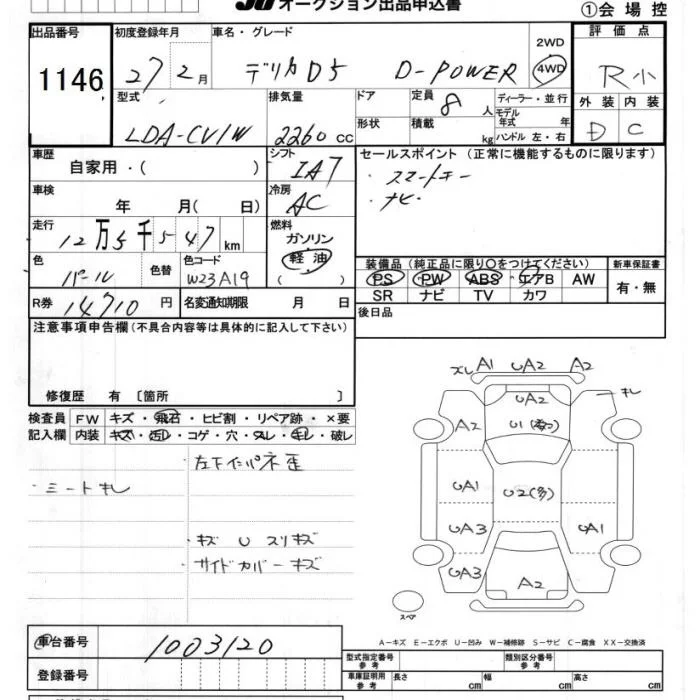 JU オークション出品申込書
①会場控
出品番号
1146
初度登録年月
27 2月
車名・グレード
デリカD5 D-POWER
2WD
4WD
評価点
R小
型式
LDA-CV1W
排気量
2260 CC
ドア
形状
定員
8人
積載
kg
ディーラー・並行
モデル年式 年
ハンドル 左・右
外装
内装
D
C
車歴
自家用・( )
シフト
IA7
セールスポイント (正常に機能するものに限ります)
・スマートキー
・ナビ
車検
年 月( 日)
冷房
AC
走行
12万5千547km
燃料
ガソリン
軽油
( )
色
パール
色替
色コード
W23A19
装備品(純正品に限り〇をつけてください)
PS PW ABS エアB AW
SR ナビ TV カワ
新車保証書
有・無
R券
14710円
名変通知期限
月 日
後日品
注意事項申告欄(不具合内容等は具体的に記入して下さい)
修復歴 有 〔箇所 〕
検査員記入欄
FW キズ・飛石・ヒビ割・リペア跡・×要
内装 キズ・汚れ・コゲ・穴・スレ・キレ・破レ
左下インパネ歪
・シートキレ
・キズ U スリキズ
・サイドカバーキズ
ズレ A1 UA2 A2
キレ
UA2
A2
U1
UA1
U2(多)
UA3
UA1
UA3
A2
スペア
A-キズ E-エクボ U-凹み W-補修跡 S-サビ C-腐食 XX-交換済
車台番号
1003120
登録番号
型式指定番号
参考
類別区分番号
参考
車庫証明用
参考
長さ cm
幅 cm
高さ cm